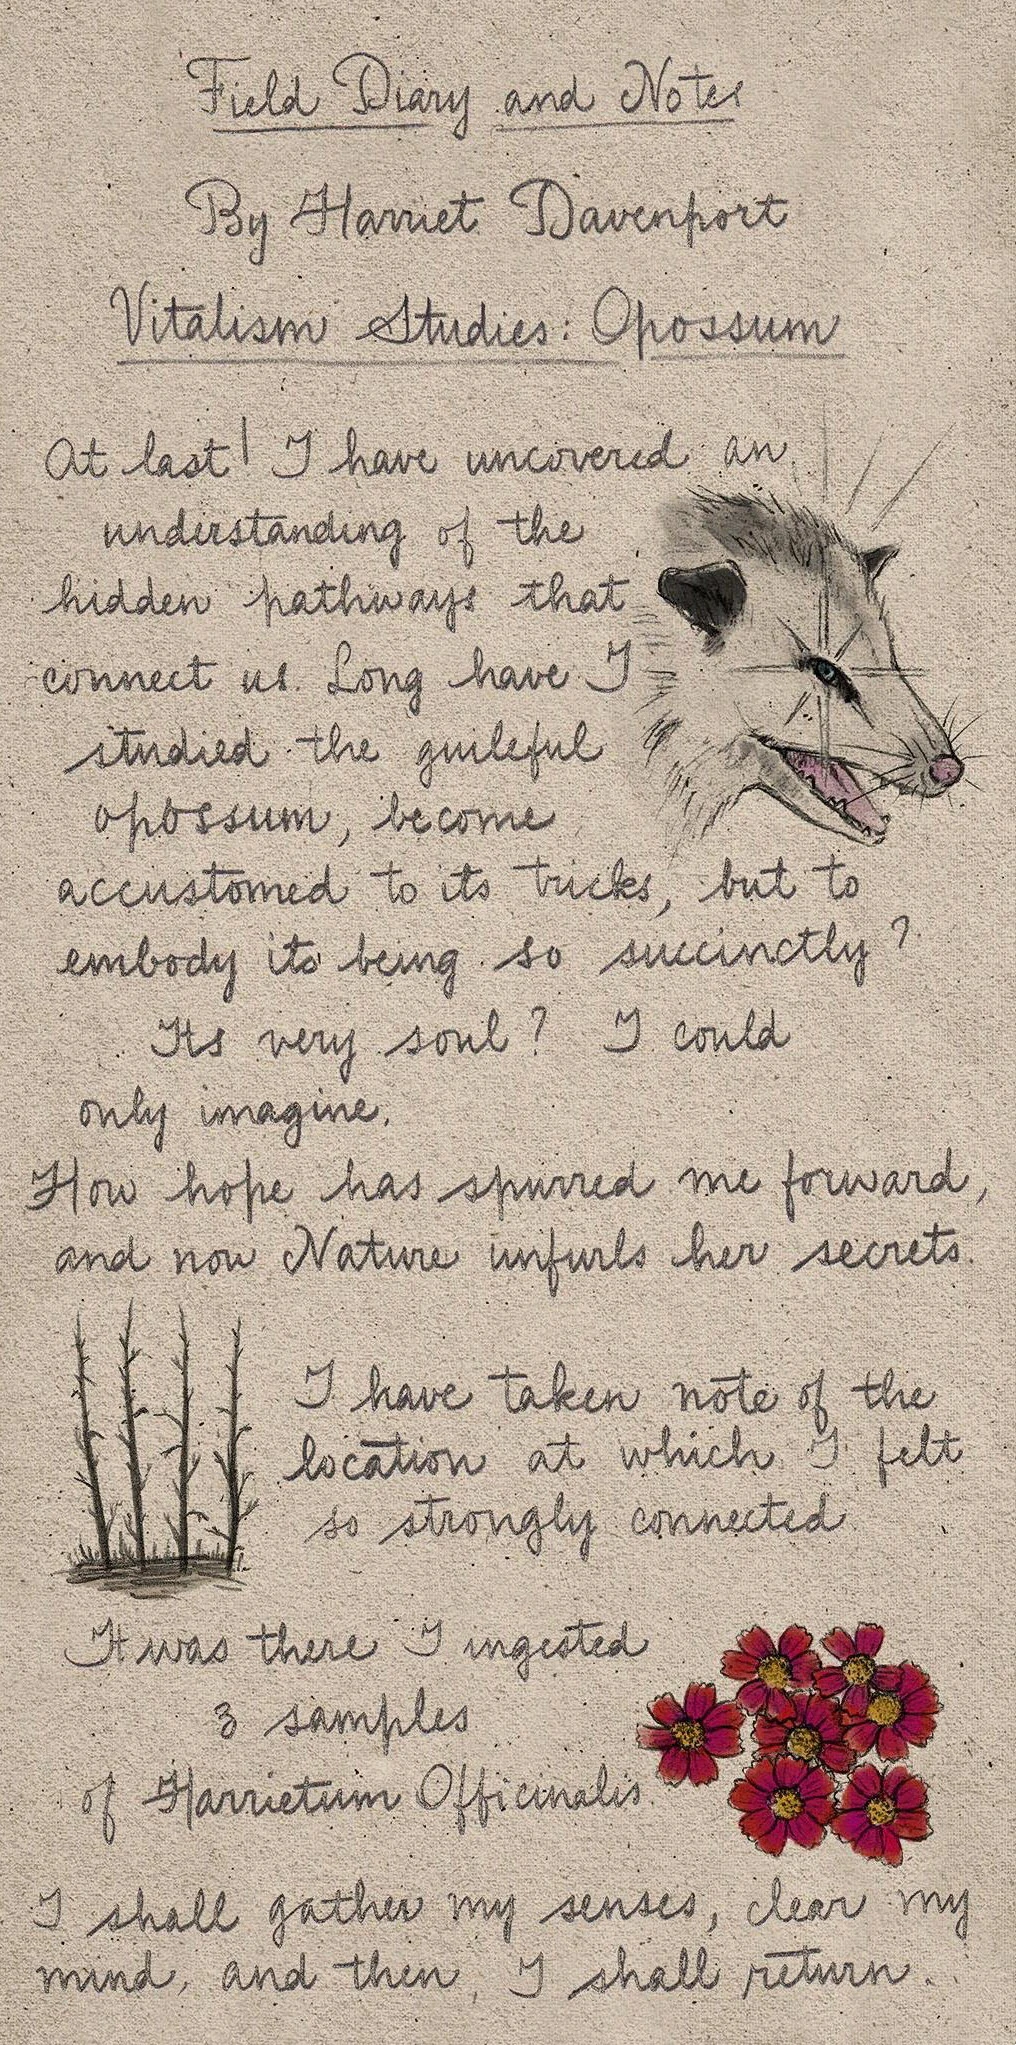 Field Diary and Notes
By Harriet Davenport
Vitalism Studies: Opossum
At last! I have uncovered an
understanding of the
hidden pathways that
connect us. Long have I
studied the guileful
opossum, become
accustomed to its tricks, but to
embody its being so succinctly?
Its very soul? I could
only imagine.
How hope has spurred me forward,
and now Nature unfurls her secrets.
I have taken note of the
location at which I felt
so strongly connected
It was there I ingested
3 samples
of Harrietum Officinalis.
I shall gather my senses, clear my
mind, and then, I shall return.